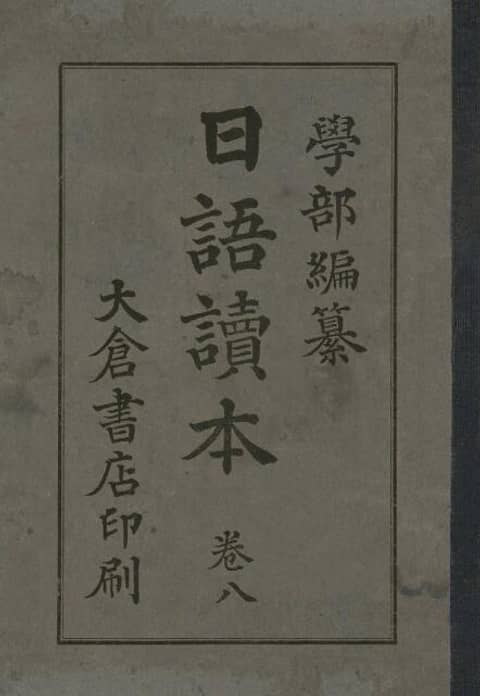 學部編纂
日語讀本 卷八
大倉書店印刷